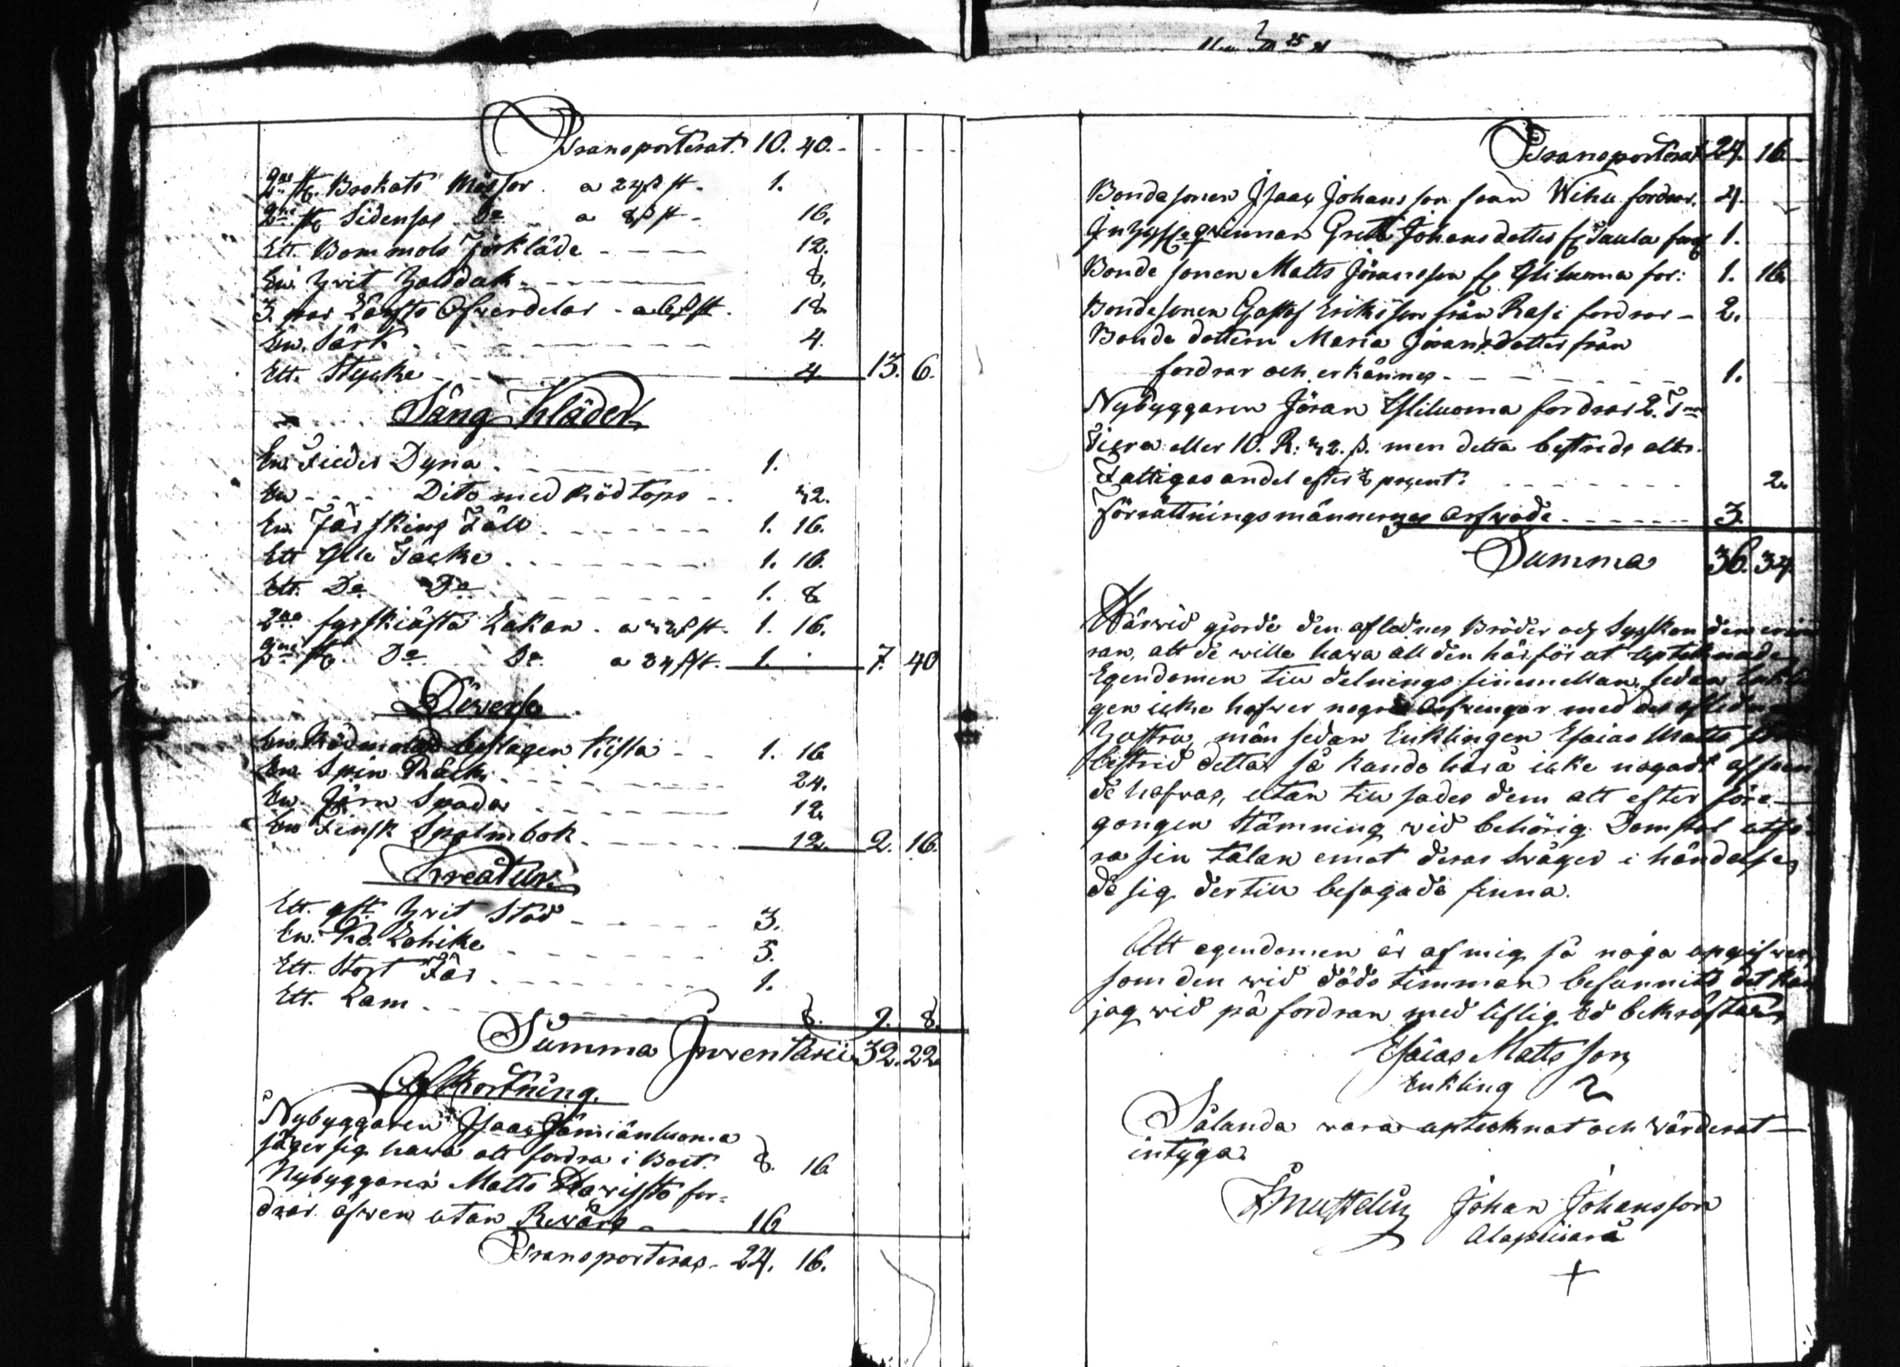 Transporterat. 10. 40.
2ne st. Brokats Mössor a 24 s st. 1.
2ne st. Sidensar Do a 8 s st. 16.
Ett. Bommols Förkläde 12.
En. hvit halsduk 8.
3. par Lärfts Öfverdelar a 6 s st. 18.
En. Särk 4.
Ett. Stycke 4. 13. 6.
Säng Kläder
En Fieder Dyna. 1.
En Dito med Rödt 32.
En Fårskins Fäll 1. 16.
Ett Ylle Täcke 1. 16.
Ett. Do Do 1. 8
2ne Lakan a st. 1. 16.
2ne st. Do Do a st. 1. 7. 40
Diverse
En Rödmålad beslagen Kiesta 1. 16
En Spin Råck 24.
En. Järn Spada 12.
En Finsk Spalmbok 12. 2. 16.
Kreatur.
Ett. hvit Stod 3.
En. Ko. Lohike 5.
Ett. Stort Får 1.
Ett. Lam 8. 9. 8.
Summa Inventarii 32. 22
Afkortning.
Nybyggaren Isaac
säger sig hava att fordra i Boet. 8. 16
Nybyggaren Matts for=
drar äfven utan Revärs 16
Transporteras 24. 16.
Transporterat 24. 16.
Bondesonen Isaac Johansson från Wihu fordrar. 4.
qvinnan Greta Johansdotter fr 1.
Bonde sonen Matts Jöransson fr Yliluoma for: 1. 16.
Bondesonen Gustaf Eriksson från Rasi fordrar 2.
Bonde dottern Maria Jöransdotter från
fordrar och erkännes 1.
Nybyggaren Jöran Yliluoma fordrar 2. Tnr
Tiera eller 10. R: 32. s. men detta bestreds alt.
Fattigas andel efter procent. 2.
Förrättningsmännernes Arfvode 3.
Summa 36. 34
Härvid gjorde den aflednes Bröder och Syskon den erin
ran, att de wille hava all den härför ut uptecknade
Egendomen till delnings sinnemellan, sedan Enklin
gen icke hafver några Arfvingar med des afledna
Hustru, män sedan Enklingen Esaias Matts son
bestrid detta, så kunde härå icke något afseen
de hafvas, utan till sades dem att efter före
gongen Stämning vid behörig Domstol utfö
ra sin talan emot deras Svåger i händelse
de sig dertill befogade finna.
Att egendomen är af mig så noga upgifven
som den wid döds timman befunnits det kan
jag wid på fordran med liflig Ed bekräfta
Esaias Matts son
Enkling
Sålunda vara uptecknat och värderat
intyga.
Johan Johansson
Alapiisarä
+